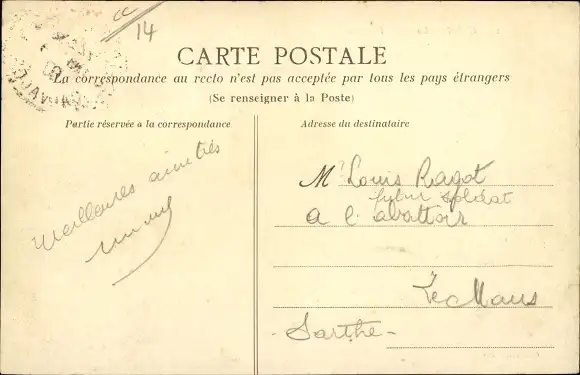 14
CARTE POSTALE
La correspondance au recto n'est pas acceptée par tous les pays étrangers
(Se renseigner à la Poste)
Partie réservée a la correspondance
Adresse du destinataire
Meilleures amitiés
Mr Louis Ragot
futur soldat
a l'abattoir
Le Mans
- Sarthe -